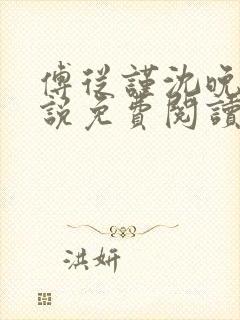 傅从謹沈晚
說免費閱讀
洪妍